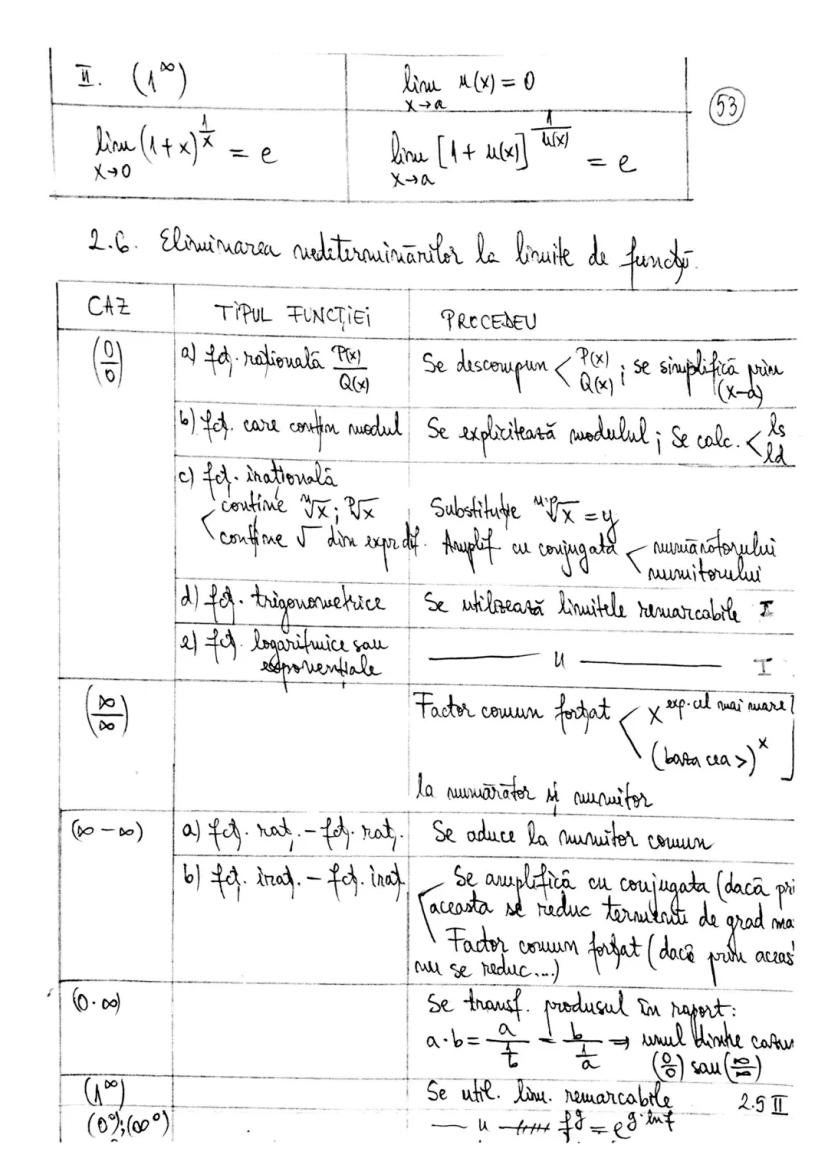 II. (1^∞)
lim u(x) = 0
x→a
53
lim (1+x)^(1/x) = e
x→0
lim [1 + u(x)]^(1/u(x)) = e
x→a
2.6. Eliminarea nedeterminărilor la limite de funcții.
CAZ
TIPUL FUNCȚIEI
PROCEDEU
(0/0)
a) fcț. rațională P(x)/Q(x)
Se descompun < P(x) Q(x) ; se simplifică prin
(x-a)
b) fcț. care conțin modul
Se explicitează modulul ; Se calc. < ls ld
c) fcț. irațională
conține ⁿ√x ; ᵖ√x
Substituție ⁿ·ᵖ√x = y
conține √ din expr. dif.
Amplif. cu conjugata < numărătorului
numitorului
d) fcț. trigonometrice
Se utilizează limitele remarcabile I
e) fcț. logaritmice sau
exponențiale
— u — I
(∞/∞)
Factor comun forțat < x^exp. cel mai mare
(baza cea >)^x
la numărător și numitor
(∞ - ∞)
a) fcț. raț. - fcț. raț.
Se aduce la numitor comun
b) fcț. iraț. - fcț. iraț.
Se amplifică cu conjugata (dacă pri
aceasta se reduc termenii de grad ma
Factor comun forțat (dacă prin aceas
nu se reduc...)
(0·∞)
Se transf. produsul în raport:
a·b = a/(1/b) = b/(1/a) ⇒ unul dintre cazur
(0/0) sau (∞/∞)
(1^∞)
Se util. lim. remarcabile 2.5 II
(0⁰);(∞⁰)
— u — f^g = e^(g·ln f)